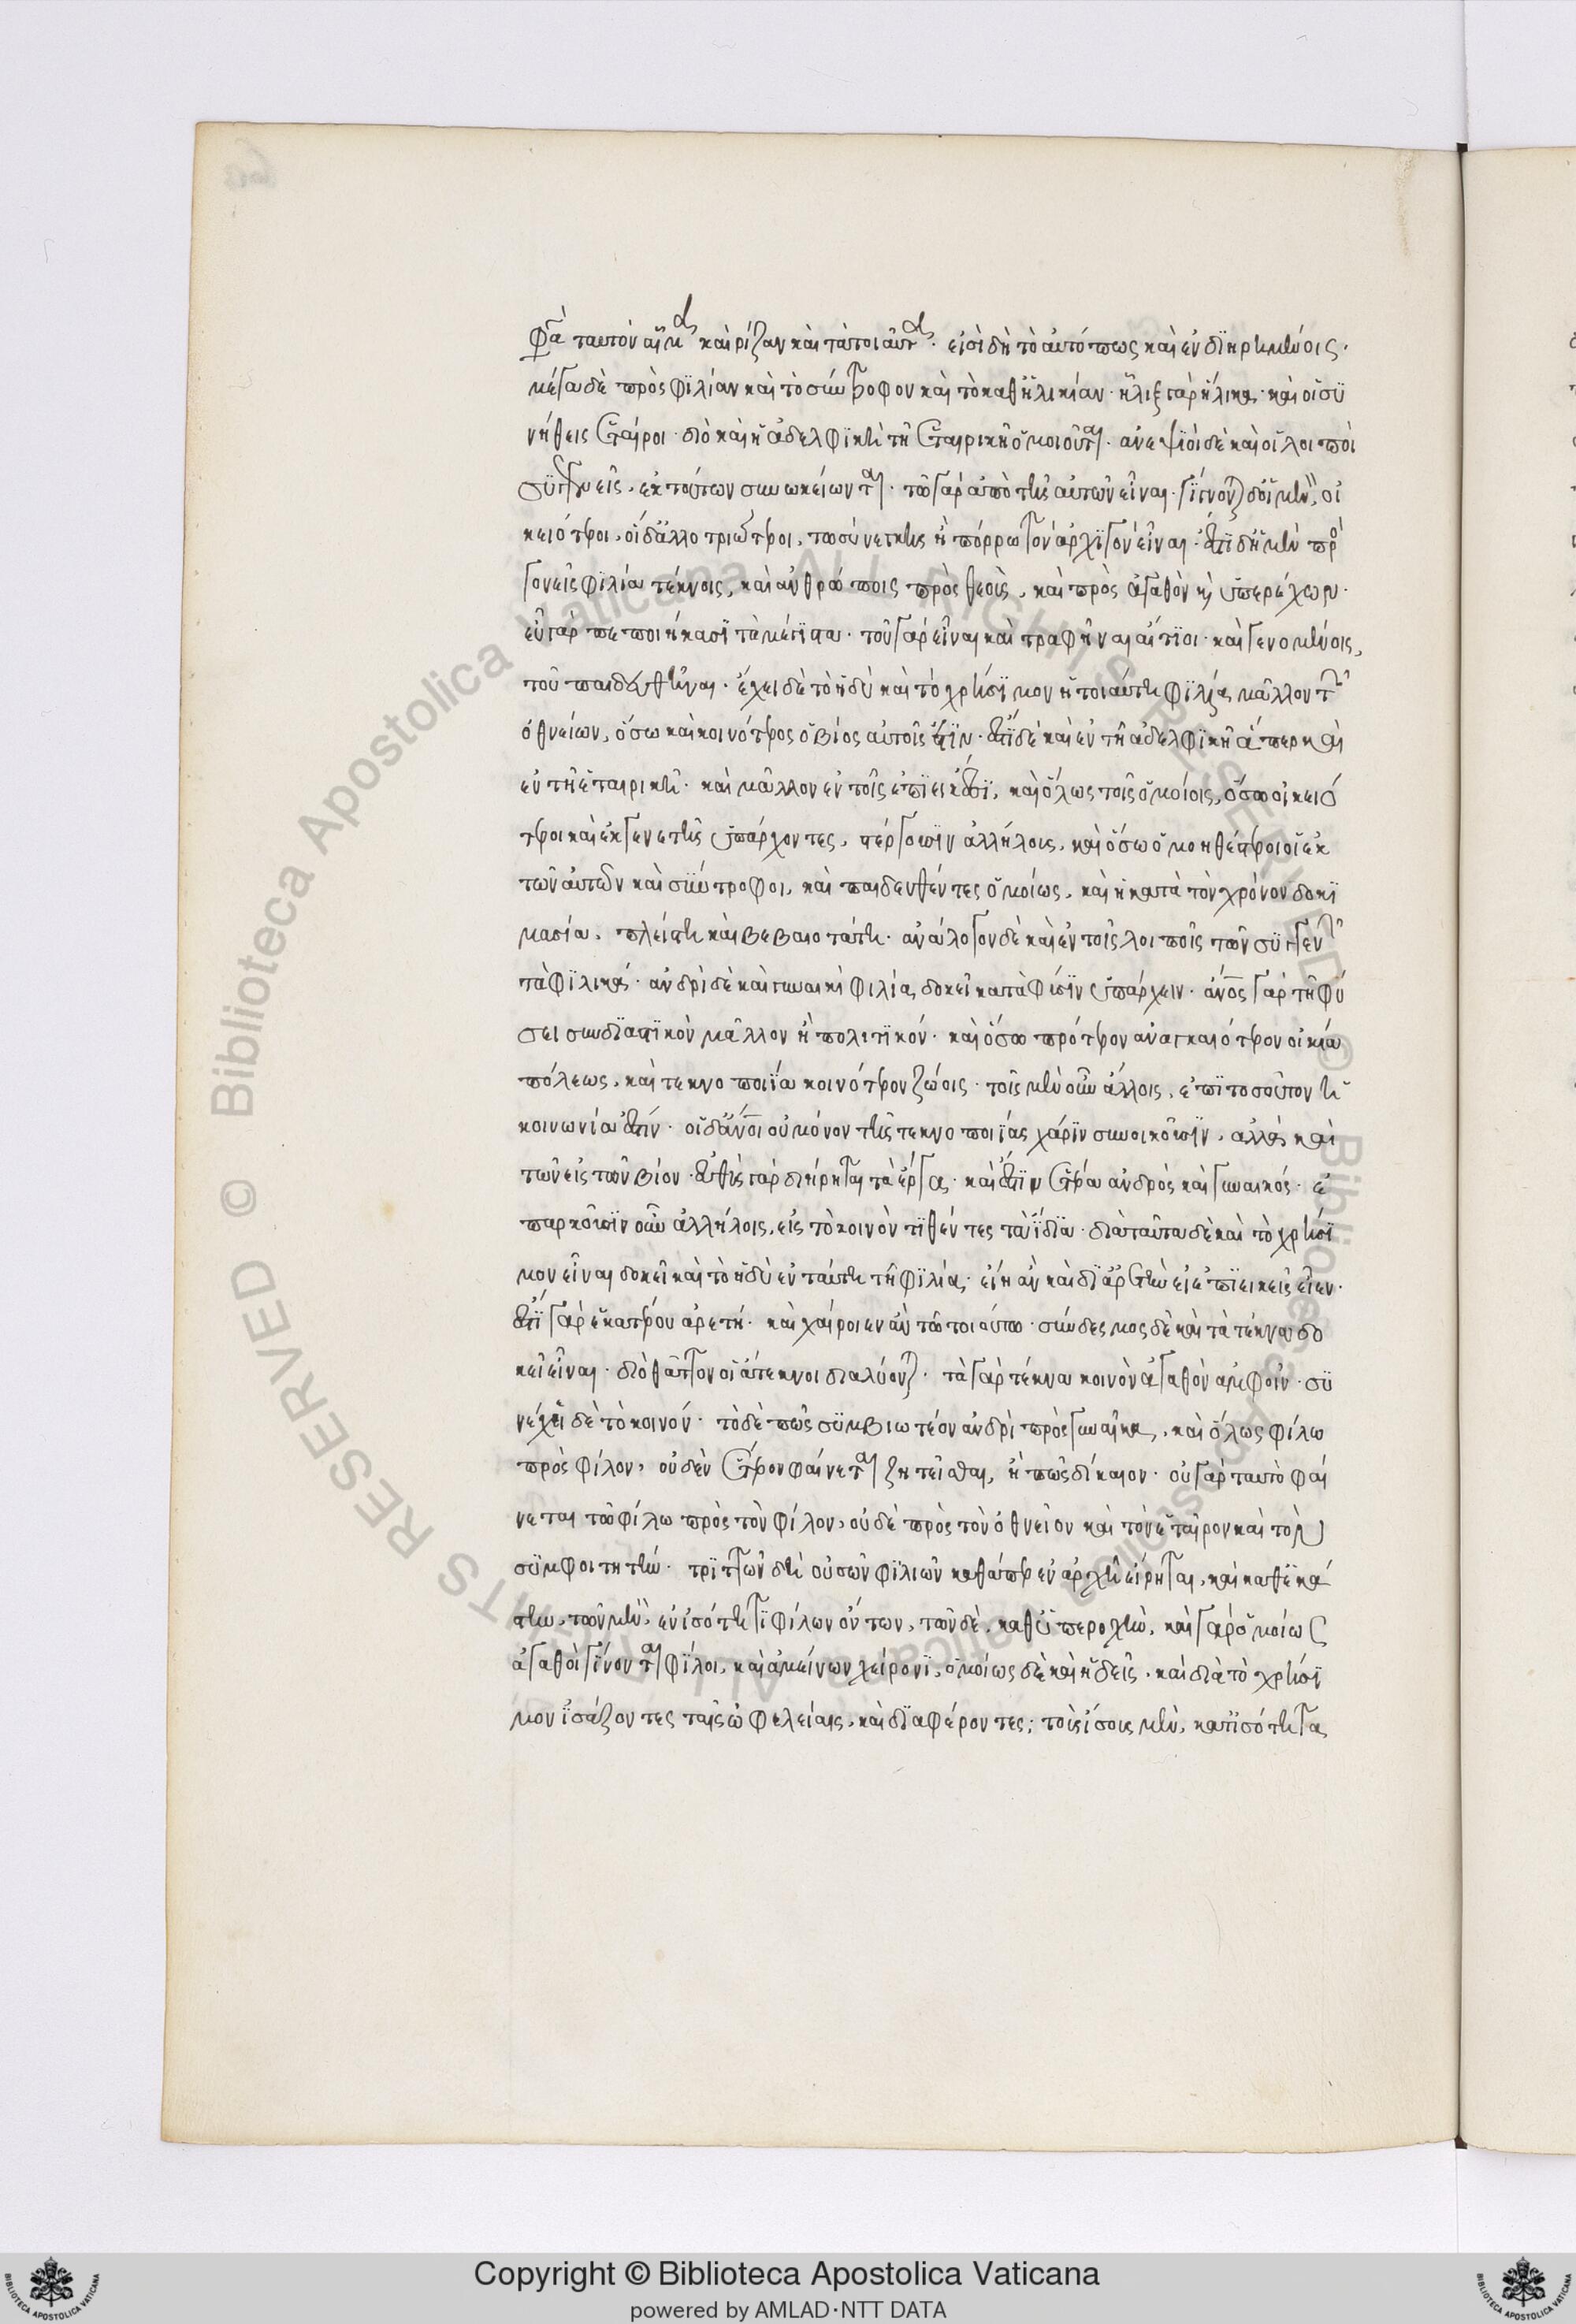 φασὶ ταυτὸν αἷμα καὶ ρίζαν καὶ τὰ τοιαῦτα· εἰσὶ δὴ τὸ αὐτό πως καὶ ἐν διῃρημένοις·
μέγα δὲ πρὸς φιλίαν καὶ τὸ σύντροφον καὶ τὸ καθ ἡλικίαν· ἧλιξ γὰρ ἥλικα· καὶ οἱ συ
νήθεις ἑταῖροι· διὸ καὶ ἡ ἀδελφικὴ τῇ ἑταιρικῇ ὁμοιοῦται· ἀνεψιοὶ δὲ καὶ οἱ λοιποὶ
συγγενεῖς, ἐκ τούτων συνωκείωνται· τῶ γὰρ ἀπὸ τῆς αὐτῶν εἶναι· γίνονται δ οἱ μὲν, οἰ
κειότεροι, οἱ δ ἀλλοτριώτεροι, τῶ σύνεγγυς ἢ πόρρω τὸν ἀρχηγὸν εἶναι· ἔστι δ ἡ μὲν πρὸς
γονεῖς φιλία τέκνοις, καὶ ἀνθρώποις πρὸς θεοὺς, καὶ πρὸς ἀγαθὸν καὶ ὑπερέχον·
εὖ γὰρ πεποιήκασι τὰ μέγιστα· τοῦ γὰρ εἶναι καὶ τραφῆναι αἴτιοι· καὶ γενομένοις,
τοῦ παιδευθῆναι· ἔχει δὲ τὸ ἡδὺ καὶ τὸ χρήσιμον ἡ τοιαύτη φιλία μᾶλλον τῶν
ὀθνείων, ὅσω καὶ κοινότερος ὁ βίος αὐτοῖς ἐστίν· ἔστι δὲ καὶ ἐν τῇ ἀδελφικῇ ἅπερ καὶ
ἐν τῇ ἑταιρικῇ· καὶ μᾶλλον ἐν τοῖς ἐπιεικέσι, καὶ ὅλως τοῖς ὁμοίοις, ὅσω οἰκειό
τεροι καὶ ἐκ γενετῆς ὑπάρχοντες, στέργουσιν ἀλλήλοις, καὶ ὅσω ὁμοηθέστεροι οἱ ἐκ
τῶν αὐτῶν καὶ σύντροφοι, καὶ παιδευθέντες ὁμοίως, καὶ ἡ κατὰ τὸν χρόνον δοκι
μασία, πλείστη καὶ βεβαιοτάτη· ἀνάλογον δὲ καὶ ἐν τοῖς λοιποῖς τῶν συγγενῶν
τὰ φιλικά· ἀνδρὶ δὲ καὶ γυναικὶ φιλία δοκεῖ κατὰ φύσιν ὑπάρχειν· ἄνος γὰρ τῇ φύ
σει συνδυαστικὸν μᾶλλον ἢ πολιτικόν· καὶ ὅσω πρότερον ἀναγκαιότερον οἰκία
πόλεως, καὶ τεκνοποιία κοινότερον ζώοις· τοῖς μὲν οὖν ἄλλοις, ἐπὶ τοσοῦτον ἡ
κοινωνία ἐστίν· οἱ δ ἄνοι οὐ μόνον τῆς τεκνοποιίας χάριν συνοικοῦσιν, ἀλλὰ καὶ
τῶν εἰς τὸν βίον· εὐθὺς γὰρ διῄρηται τὰ ἔργα· καὶ ἔστιν ἕτερα ἀνδρὸς καὶ γυναικός· ἐ
παρκοῦσιν οὖν ἀλλήλοις, εἰς τὸ κοινὸν τιθέντες τὰ ἴδια· διὰ ταῦτα δὲ καὶ τὸ χρήσι
μον εἶναι δοκεῖ καὶ τὸ ἡδὺ ἐν ταύτη τῇ φιλία· εἴη ἂν καὶ δι ἀρετὴν εἰ ἐπιεικεῖς εἶεν·
ἔστι γὰρ ἑκατέρου ἀρετή· καὶ χαίροιεν ἂν τῶ τοιούτω· σύνδεσμος δὲ καὶ τὰ τέκνα δο
κεῖ εἶναι· διὸ θᾶττον οἱ ἄτεκνοι διαλύονται· τὰ γὰρ τέκνα κοινὸν ἀγαθὸν ἀμφοῖν· συ
νέχει δὲ τὸ κοινόν· τὸ δὲ πῶς συμβιωτέον ἀνδρὶ πρὸς γυναῖκα, καὶ ὅλως φίλω
πρὸς φίλον, οὐδὲν ἕτερον φαίνεται ζητεῖσθαι, ἢ πῶς δίκαιον· οὐ γὰρ ταυτὸ φαί
νεται τῶ φίλω πρὸς τὸν φίλον, οὐδὲ πρὸς τὸν ὀθνεῖον καὶ τὸν ἑταῖρον καὶ τὸν
συμφοιτητήν· τριττῶν δὴ οὐσῶν φιλιῶν καθάπερ ἐν ἀρχῇ εἴρηται, καὶ καθ ἑκά
στην, τῶν μὲν, ἐν ἰσότητι φίλων ὄντων, τῶν δὲ, καθ ὑπεροχήν, καὶ γὰρ ὁμοίως
ἀγαθοὶ γίνονται φίλοι, καὶ ἀμείνων χείρονι, ὁμοίως δὲ καὶ ἡδεῖς, καὶ διὰ τὸ χρήσι
μον ἰσάζοντες ταῖς ὠφελείαις, καὶ διαφέροντες; τοὺς ἴσους μὲν, κατ ἰσότητα
Copyright © Biblioteca Apostolica Vaticana
powered by AMLAD·NTT DATA